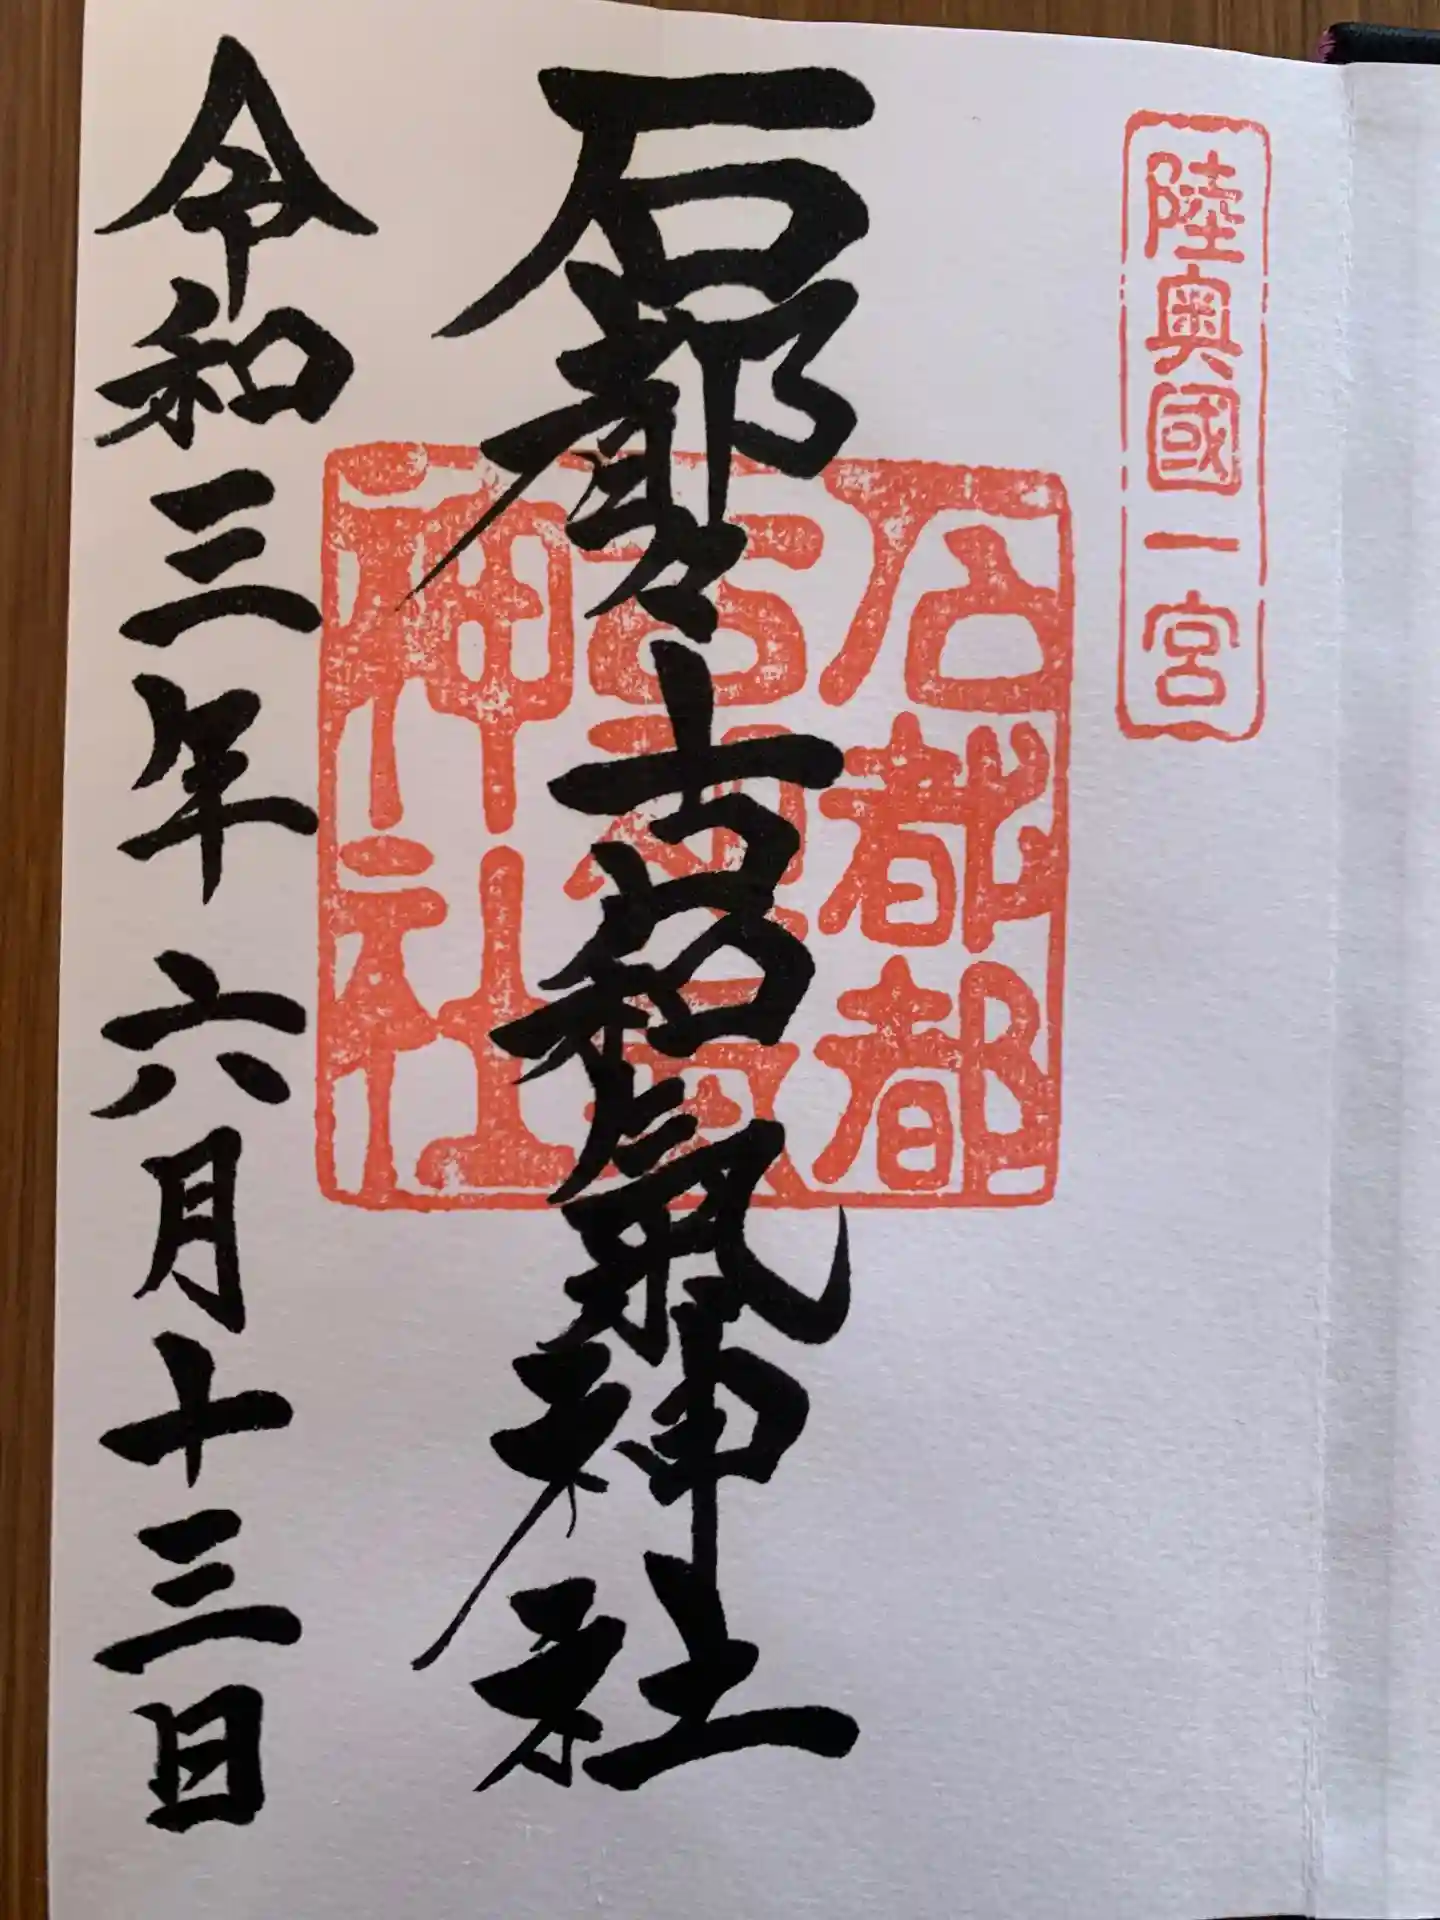 陸奥國一宮
石都々古和氣神社
石都都古和氣神社
令和三年六月十三日